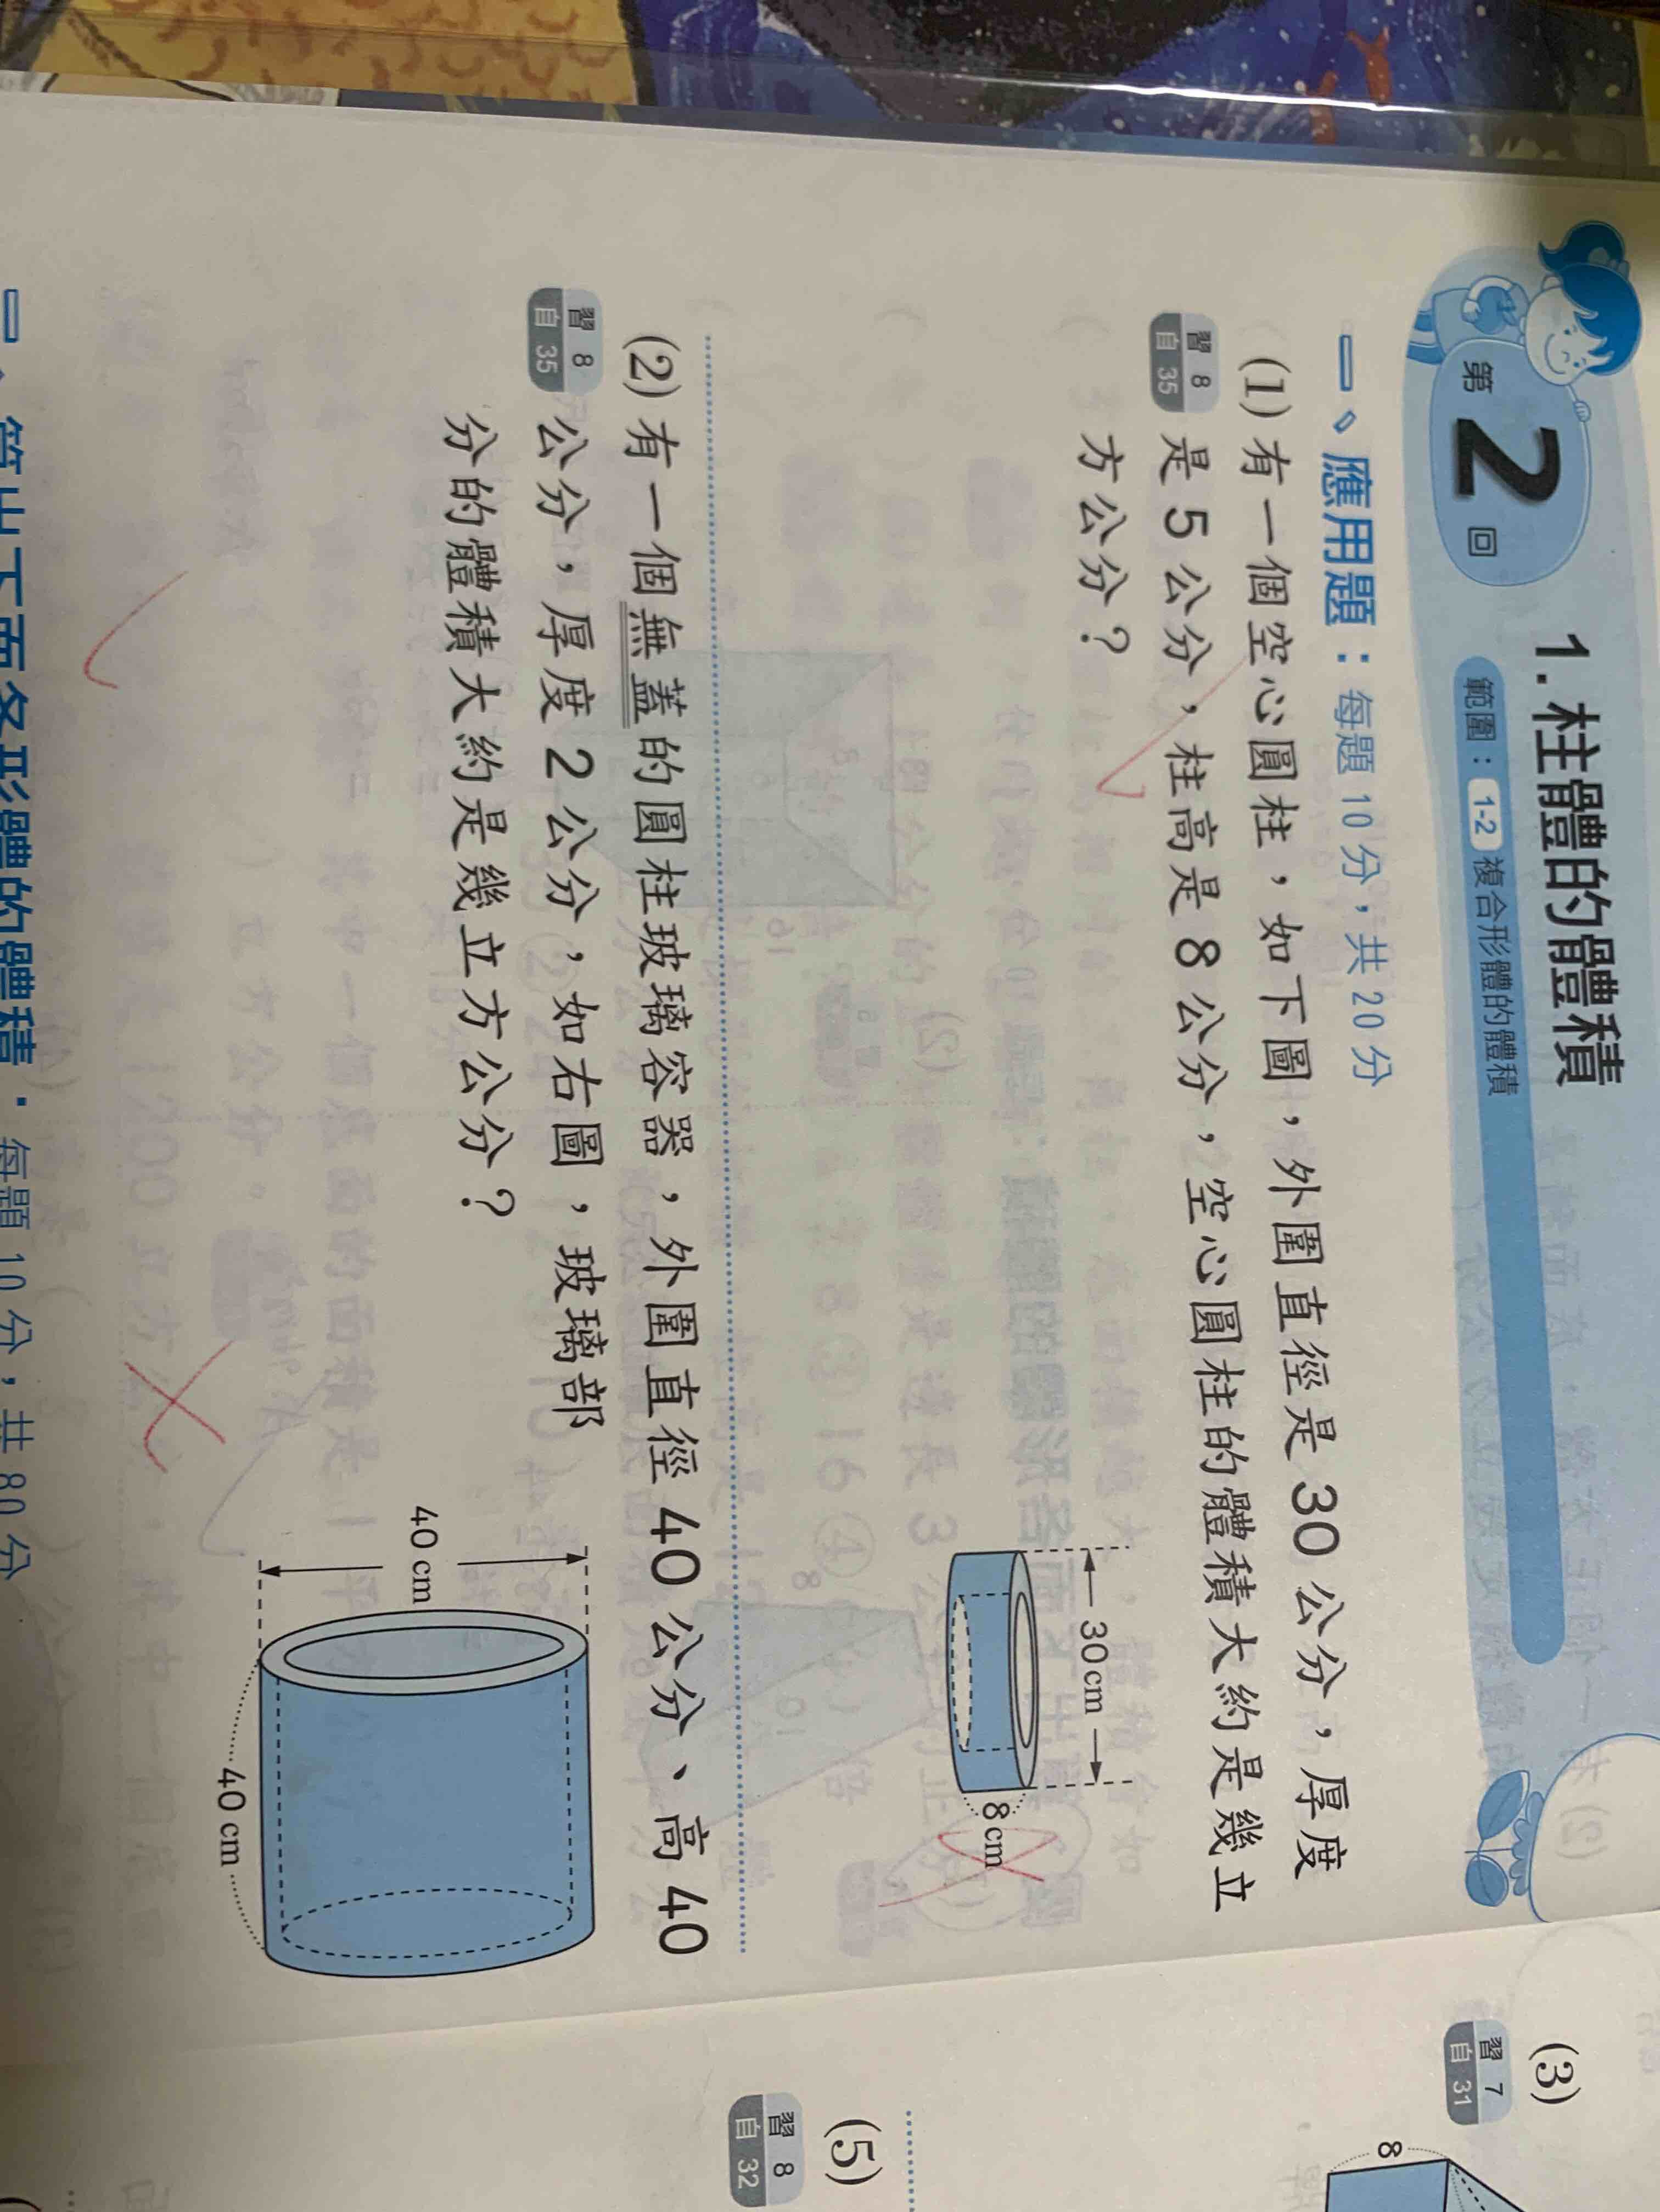 第2回
1.柱體的體積
範圍：1-2 複合形體的體積
一、應用題：每題10分，共20分
(1) 有一個空心圓柱，如下圖，外圍直徑是30公分，厚度
習 8
自 35
是5公分，柱高是8公分，空心圓柱的體積大約是幾立
方公分？
30cm
8cm
(2) 有一個無蓋的圓柱玻璃容器，外圍直徑40公分、高40
習 8
自 35
公分，厚度2公分，如右圖，玻璃部
分的體積大約是幾立方公分？
40 cm
40 cm
二、算出下面各形體的體積：每題10分，共80分
(3)
習 7
自 31
8
(5)
習 8
自 32